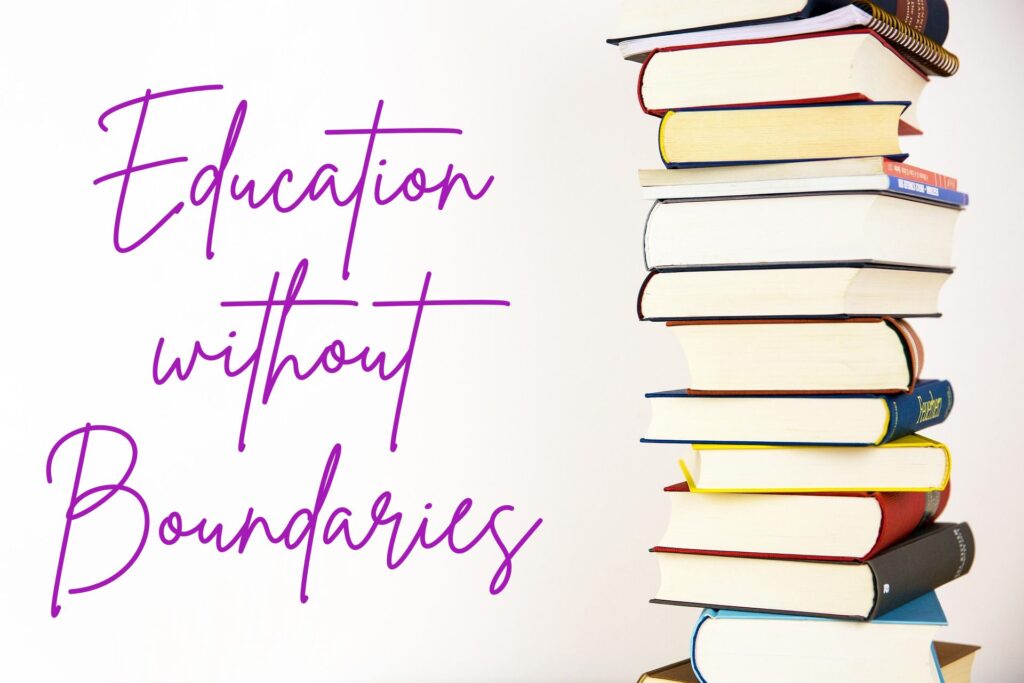 Education
without
Boundaries